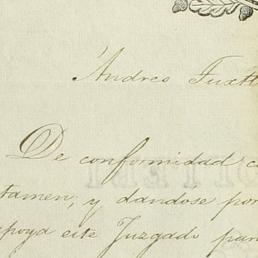 Andres Fuxtt
De conformidad c
tamen, y dandose por
apoya este Juzgado para